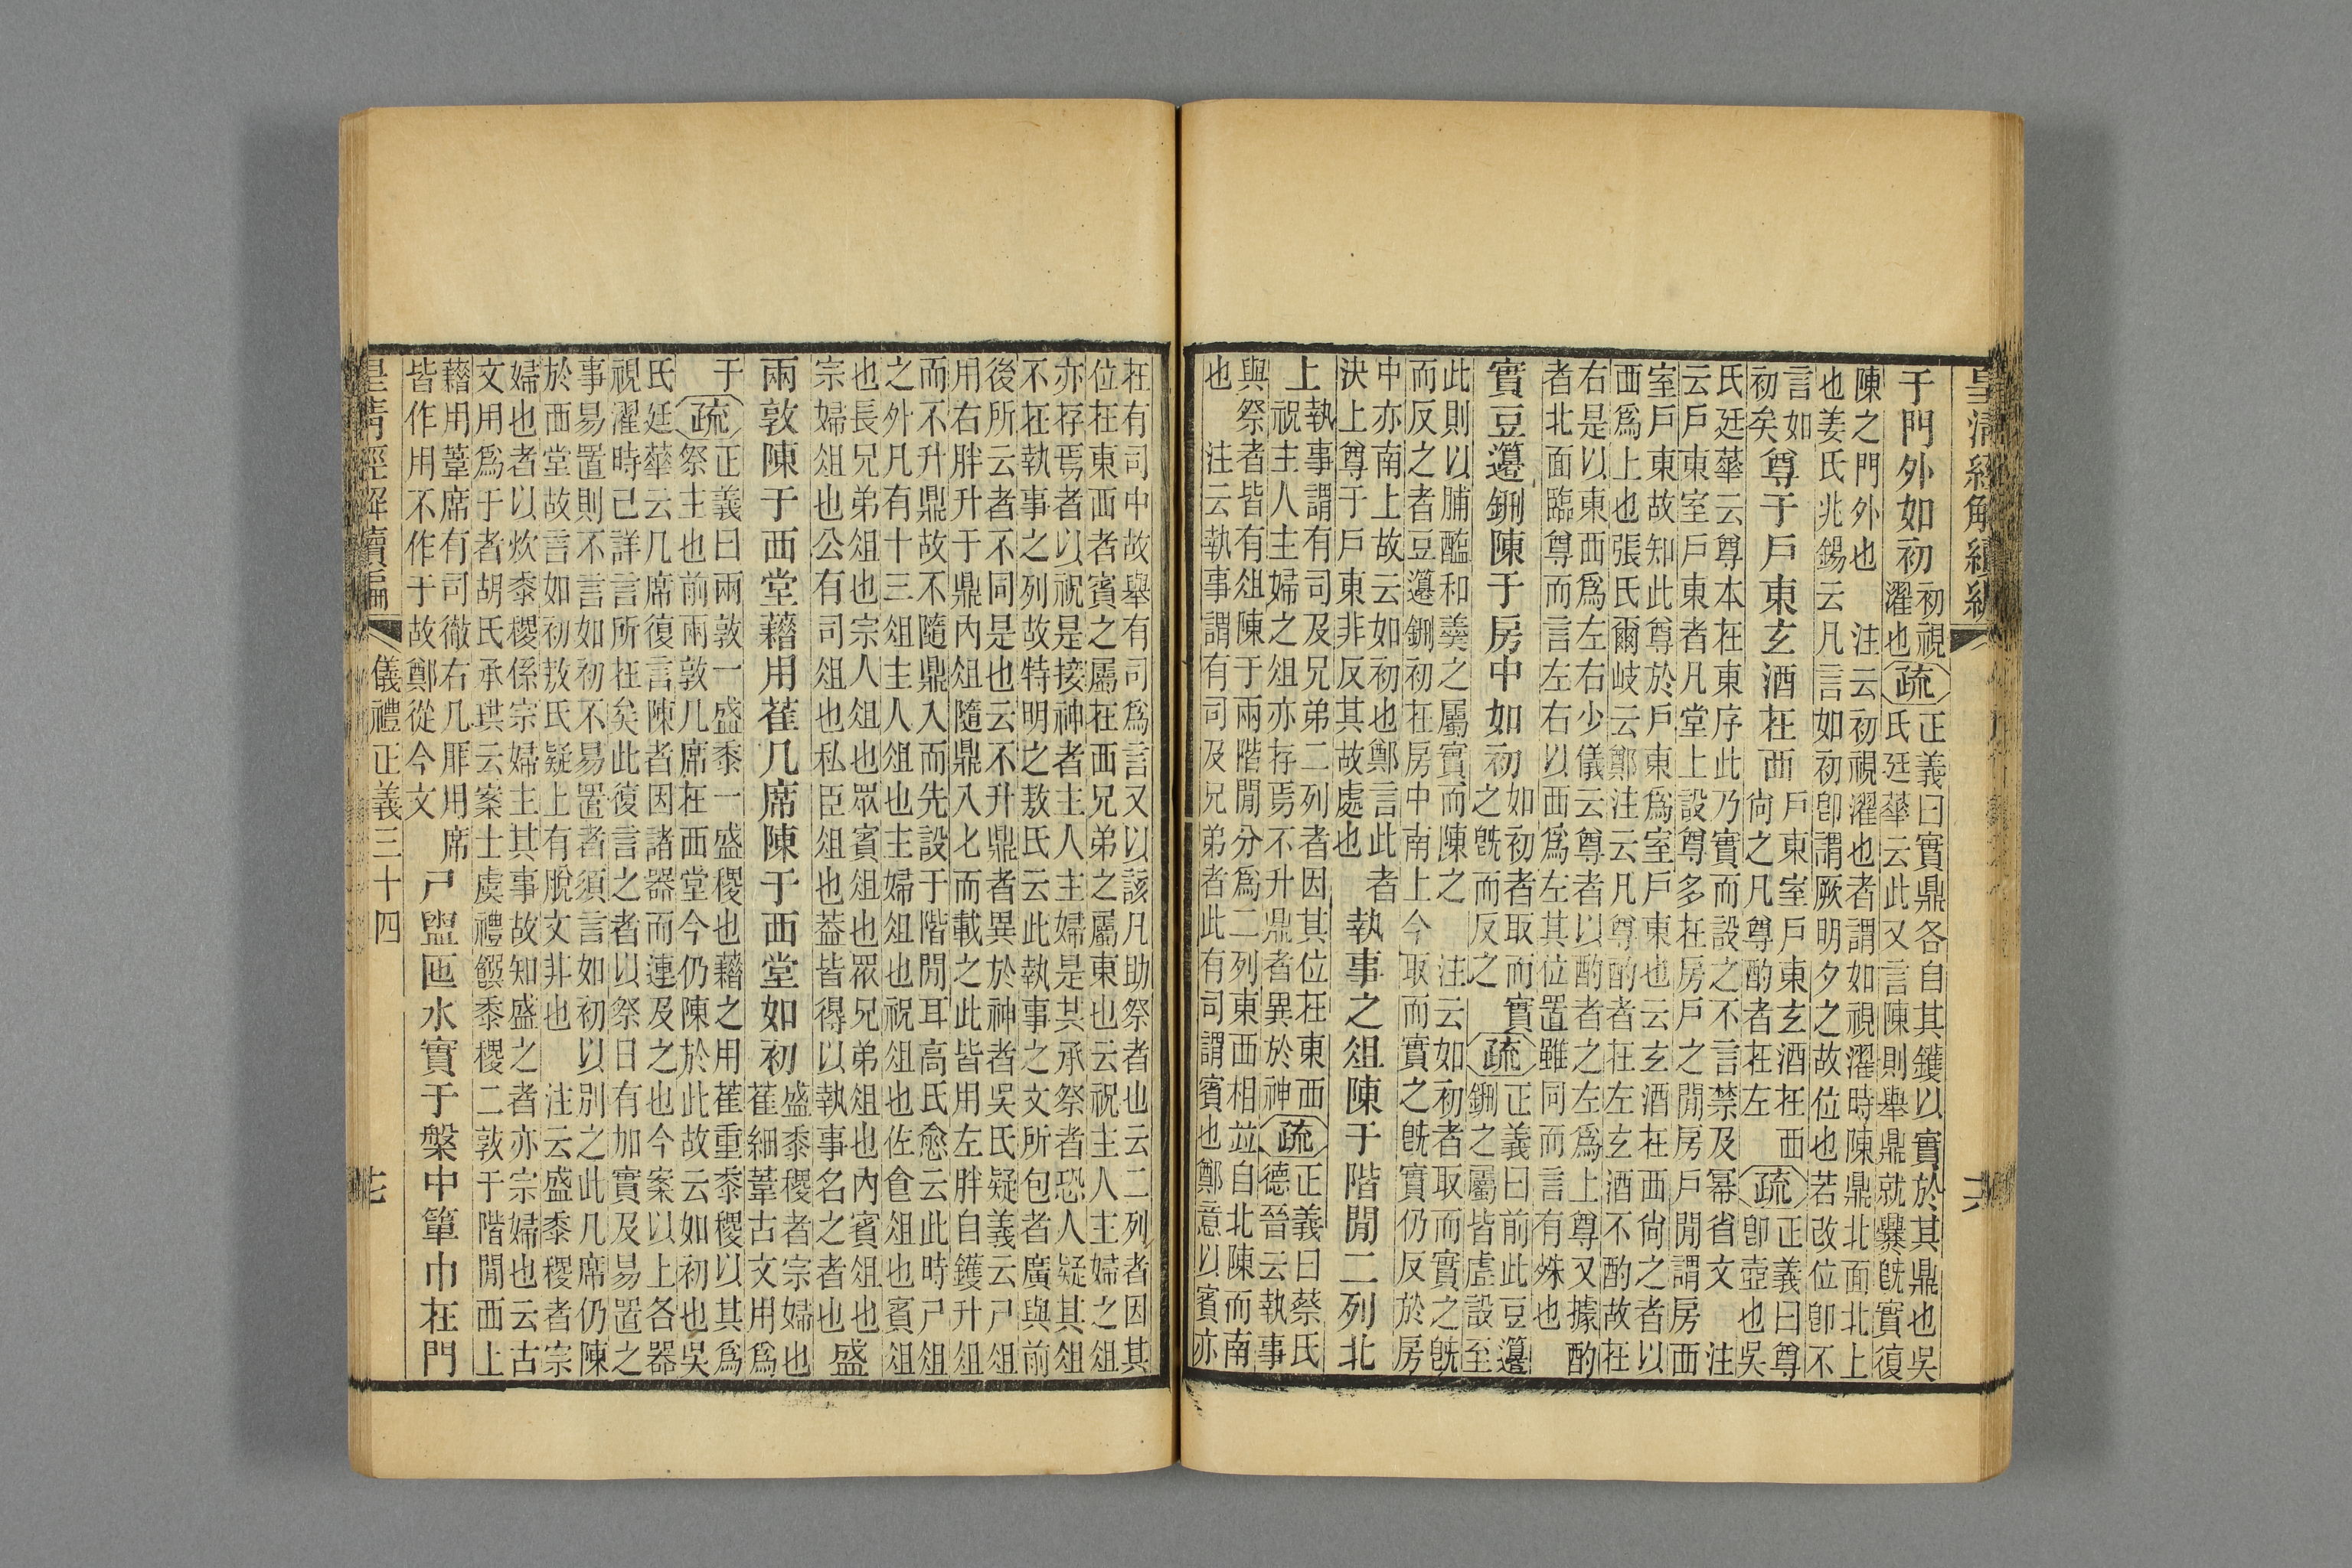 皇清經解續編
于門外如初初視濯也疏正義曰實鼎各自其鑊以實於其鼎也吳氏廷華云此又言陳則舉鼎就爨旣實復
陳之門外也 注云初視濯也者謂如視濯時陳鼎北面北上也姜氏兆錫云凡言如初卽謂厥明夕之故位也若改位卽不
言如初矣尊于戶東玄酒在西戶東室戶東玄酒在西尙之凡尊酌者在左疏正義曰尊卽壺也吳
氏廷華云尊本在東序此乃實而設之不言禁及冪省文 注云戶東室戶東者凡堂上設尊多在房戶之閒房戶閒謂房西
室戶東故知此尊於戶東爲室戶東也云玄酒在西尙之者以西爲上也張氏爾岐云鄭注云凡尊酌者在左玄酒不酌故在
右是以東西爲左右少儀云尊者以酌者之左爲上尊又據酌者北面臨尊而言左右以西爲左其位置雖同而言有殊也
實豆籩鉶陳于房中如初如初者取而實之旣而反之疏正義曰前此豆籩鉶之屬皆虛設至
此則以脯醢和羹之屬實而陳之 注云如初者取而實之旣而反之者豆籩鉶初在房中南上今取而實之旣實仍反於房
中亦南上故云如初也鄭言此者決上尊于戶東非反其故處也執事之俎陳于階閒二列北
上執事謂有司及兄弟二列者因其位在東西祝主人主婦之俎亦存焉不升鼎者異於神疏正義曰蔡氏德晉云執事
與祭者皆有俎陳于兩階閒分爲二列東西相竝自北陳而南也 注云執事謂有司及兄弟者此有司謂賓也鄭意以賓亦
在有司中故舉有司爲言又以該凡助祭者也云二列者因其位在東西者賓之屬在西兄弟之屬東也云祝主人主婦之俎
亦存焉者以祝是接神者主人主婦是共承祭者恐人疑其俎不在執事之列故特明之敖氏云此執事之文所包者廣與前
後所云者不同是也云不升鼎者異於神者吳氏疑義云尸俎用右胖升于鼎內俎隨鼎入匕而載之此皆用左胖自鑊升俎
而不升鼎故不隨鼎入而先設于階閒耳高氏愈云此時尸俎之外凡有十三俎主人俎也主婦俎也祝俎也佐食俎也賓俎
也長兄弟俎也宗人俎也眾賓俎也眾兄弟俎也內賓俎也宗婦俎也公有司俎也私臣俎也蓋皆得以執事名之者也盛
兩敦陳于西堂藉用萑几席陳于西堂如初盛黍稷者宗婦也萑細葦古文用爲
于疏正義曰兩敦一盛黍一盛稷也藉之用萑重黍稷以其爲祭主也前兩敦几席在西堂今仍陳於此故云如初也吳
氏廷華云几席復言陳者因諸器而連及之也今案以上各器視濯時已詳言所在矣此復言之者以祭日有加實及易置之
事易置則不言如初不易置者須言如初以別之此几席仍陳於西堂故言如初敖氏疑上有脫文非也 注云盛黍稷者宗
婦也者以炊黍稷係宗婦主其事故知盛之者亦宗婦也云古文用爲于者胡氏承珙云案士虞禮饌黍稷二敦于階閒西上
藉用葦席有司徹右几厞用席皆作用不作于故鄭從今文尸盥匜水實于槃中簞巾在門
皇清經解續編
儀禮正義三十四